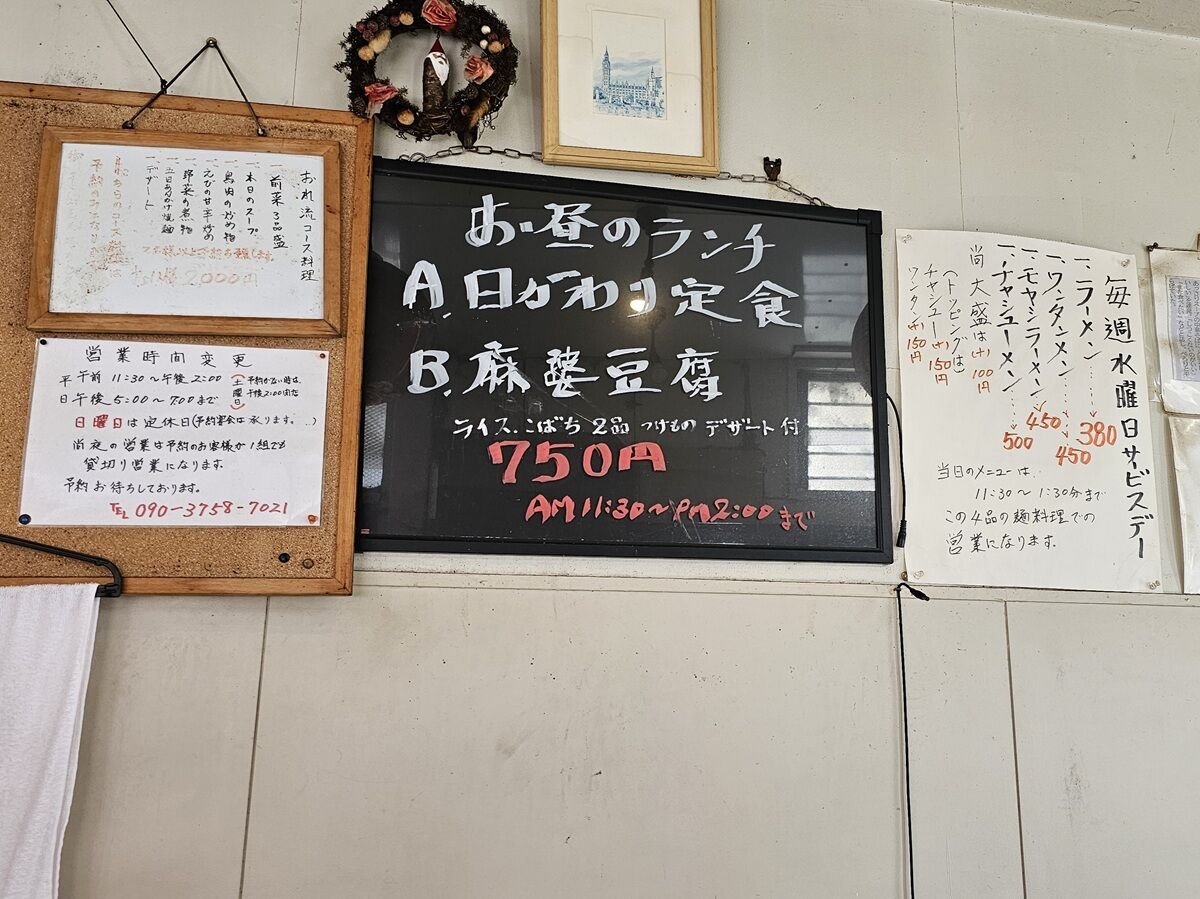 おれ流コース料理
一、前菜3品盛
一、本日のスープ
一、鳥肉の炒め物
一、えびの甘辛炒め
一、野菜の煮物
一、五目あんかけ焼麺
一、デザート
2000円
営業時間変更
平日 午前 11:30〜午後 2:00
午後 5:00〜7:00まで
(土曜日 予約がない時は、午後2:00閉店)
日曜日は定休日(予約宴会は承ります。)
尚夜の営業は予約のお客様が1組でも
貸切り営業になります。
予約お待ちしております。
TEL 090-3758-7021
お昼のランチ
A.日がわり定食
B.麻婆豆腐
ライス、こばち2品 つけもの デザート付
750円
AM11:30〜PM2:00まで
毎週水曜日サービスデー
一、ラーメン……380
一、ワンタンメン……450
一、モヤシラーメン…450
一、チャシューメン……500
尚大盛は(+)100円
(トッピングは)
チャシュー(+)150円
ワンタン(+)150円
当日のメニューは
11:30〜1:30分まで
この4品の麺料理での
営業になります。